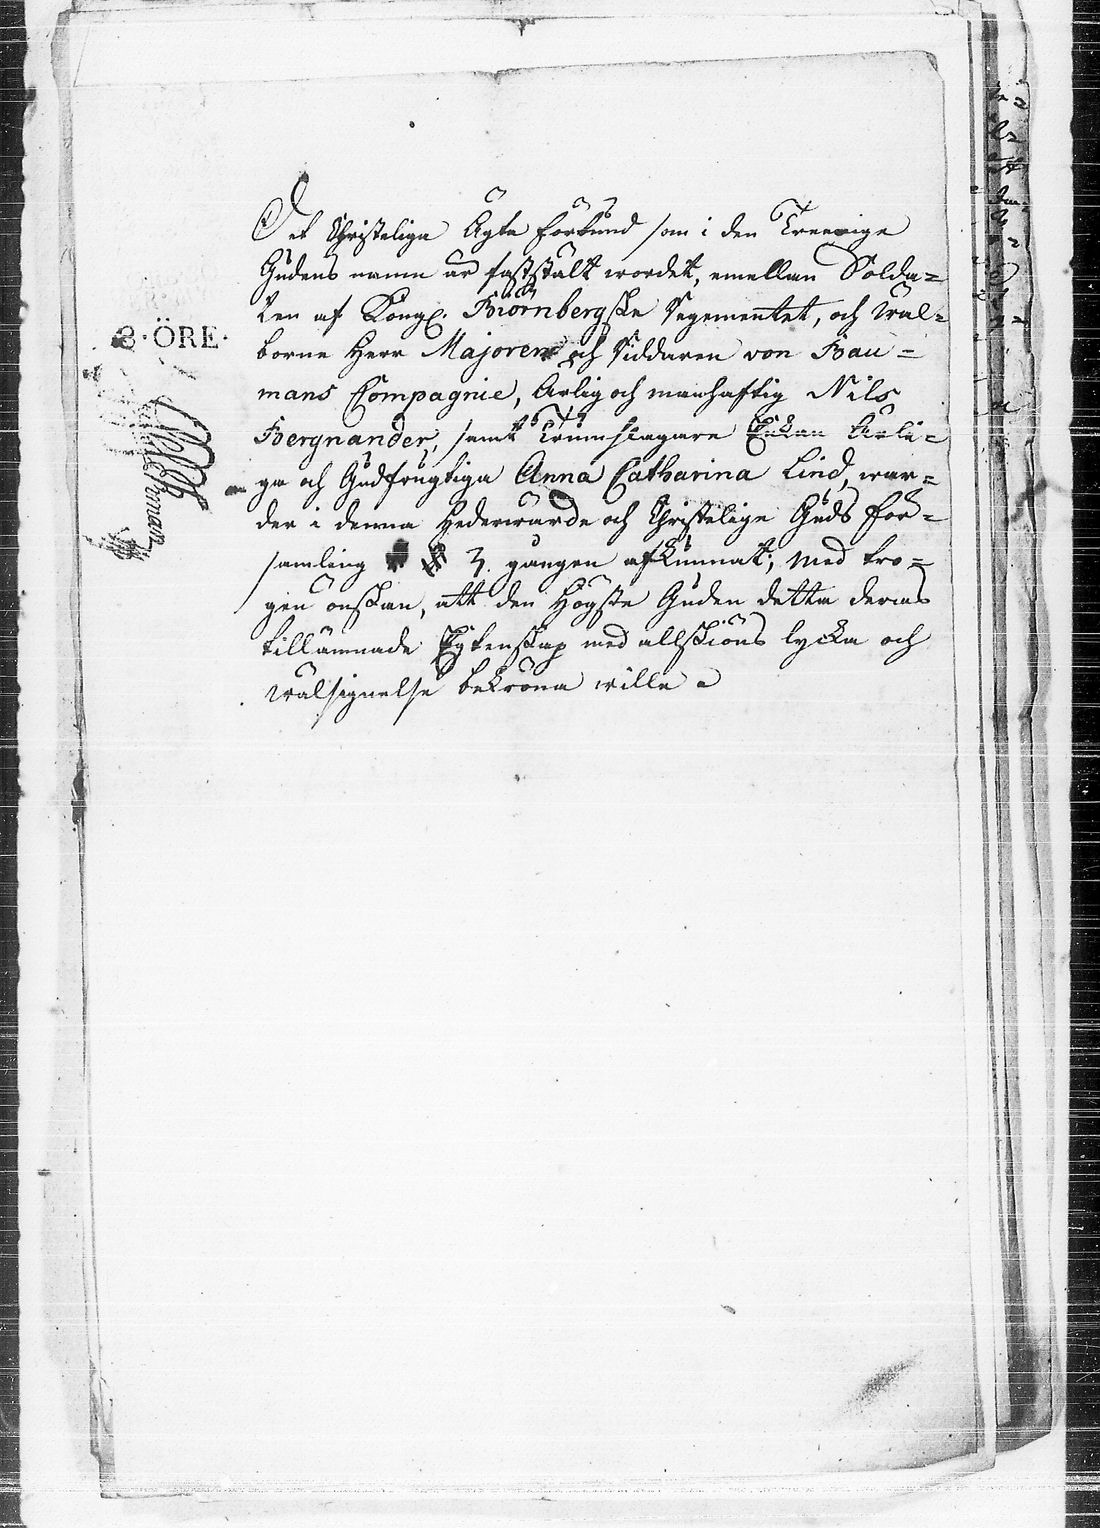 Det Christeliga Ägta förbund som i den Treenige
Gudens namn är fastställt wordet, emellan Solda=
ten af Kongl. Biörnbergske Regementet, och Wäl=
borne Herr Majoren och Riddaren von Bau=
mans Compagnie, Ärlig och manhaftig Nils
Bergnander, samt Trumslagare Enkan Ärli=
ga och Gudfrugtiga Anna Catharina Lind, war=
der i denna Hederwärde och Christelige Guds för=
samling 3. gången afkunnat; med tro=
gen önskan, att den Högste Guden detta deras
tillämnade Egtenskap med allskiöns lycka och
wälsignelse bekröna wille
8·ÖRE·